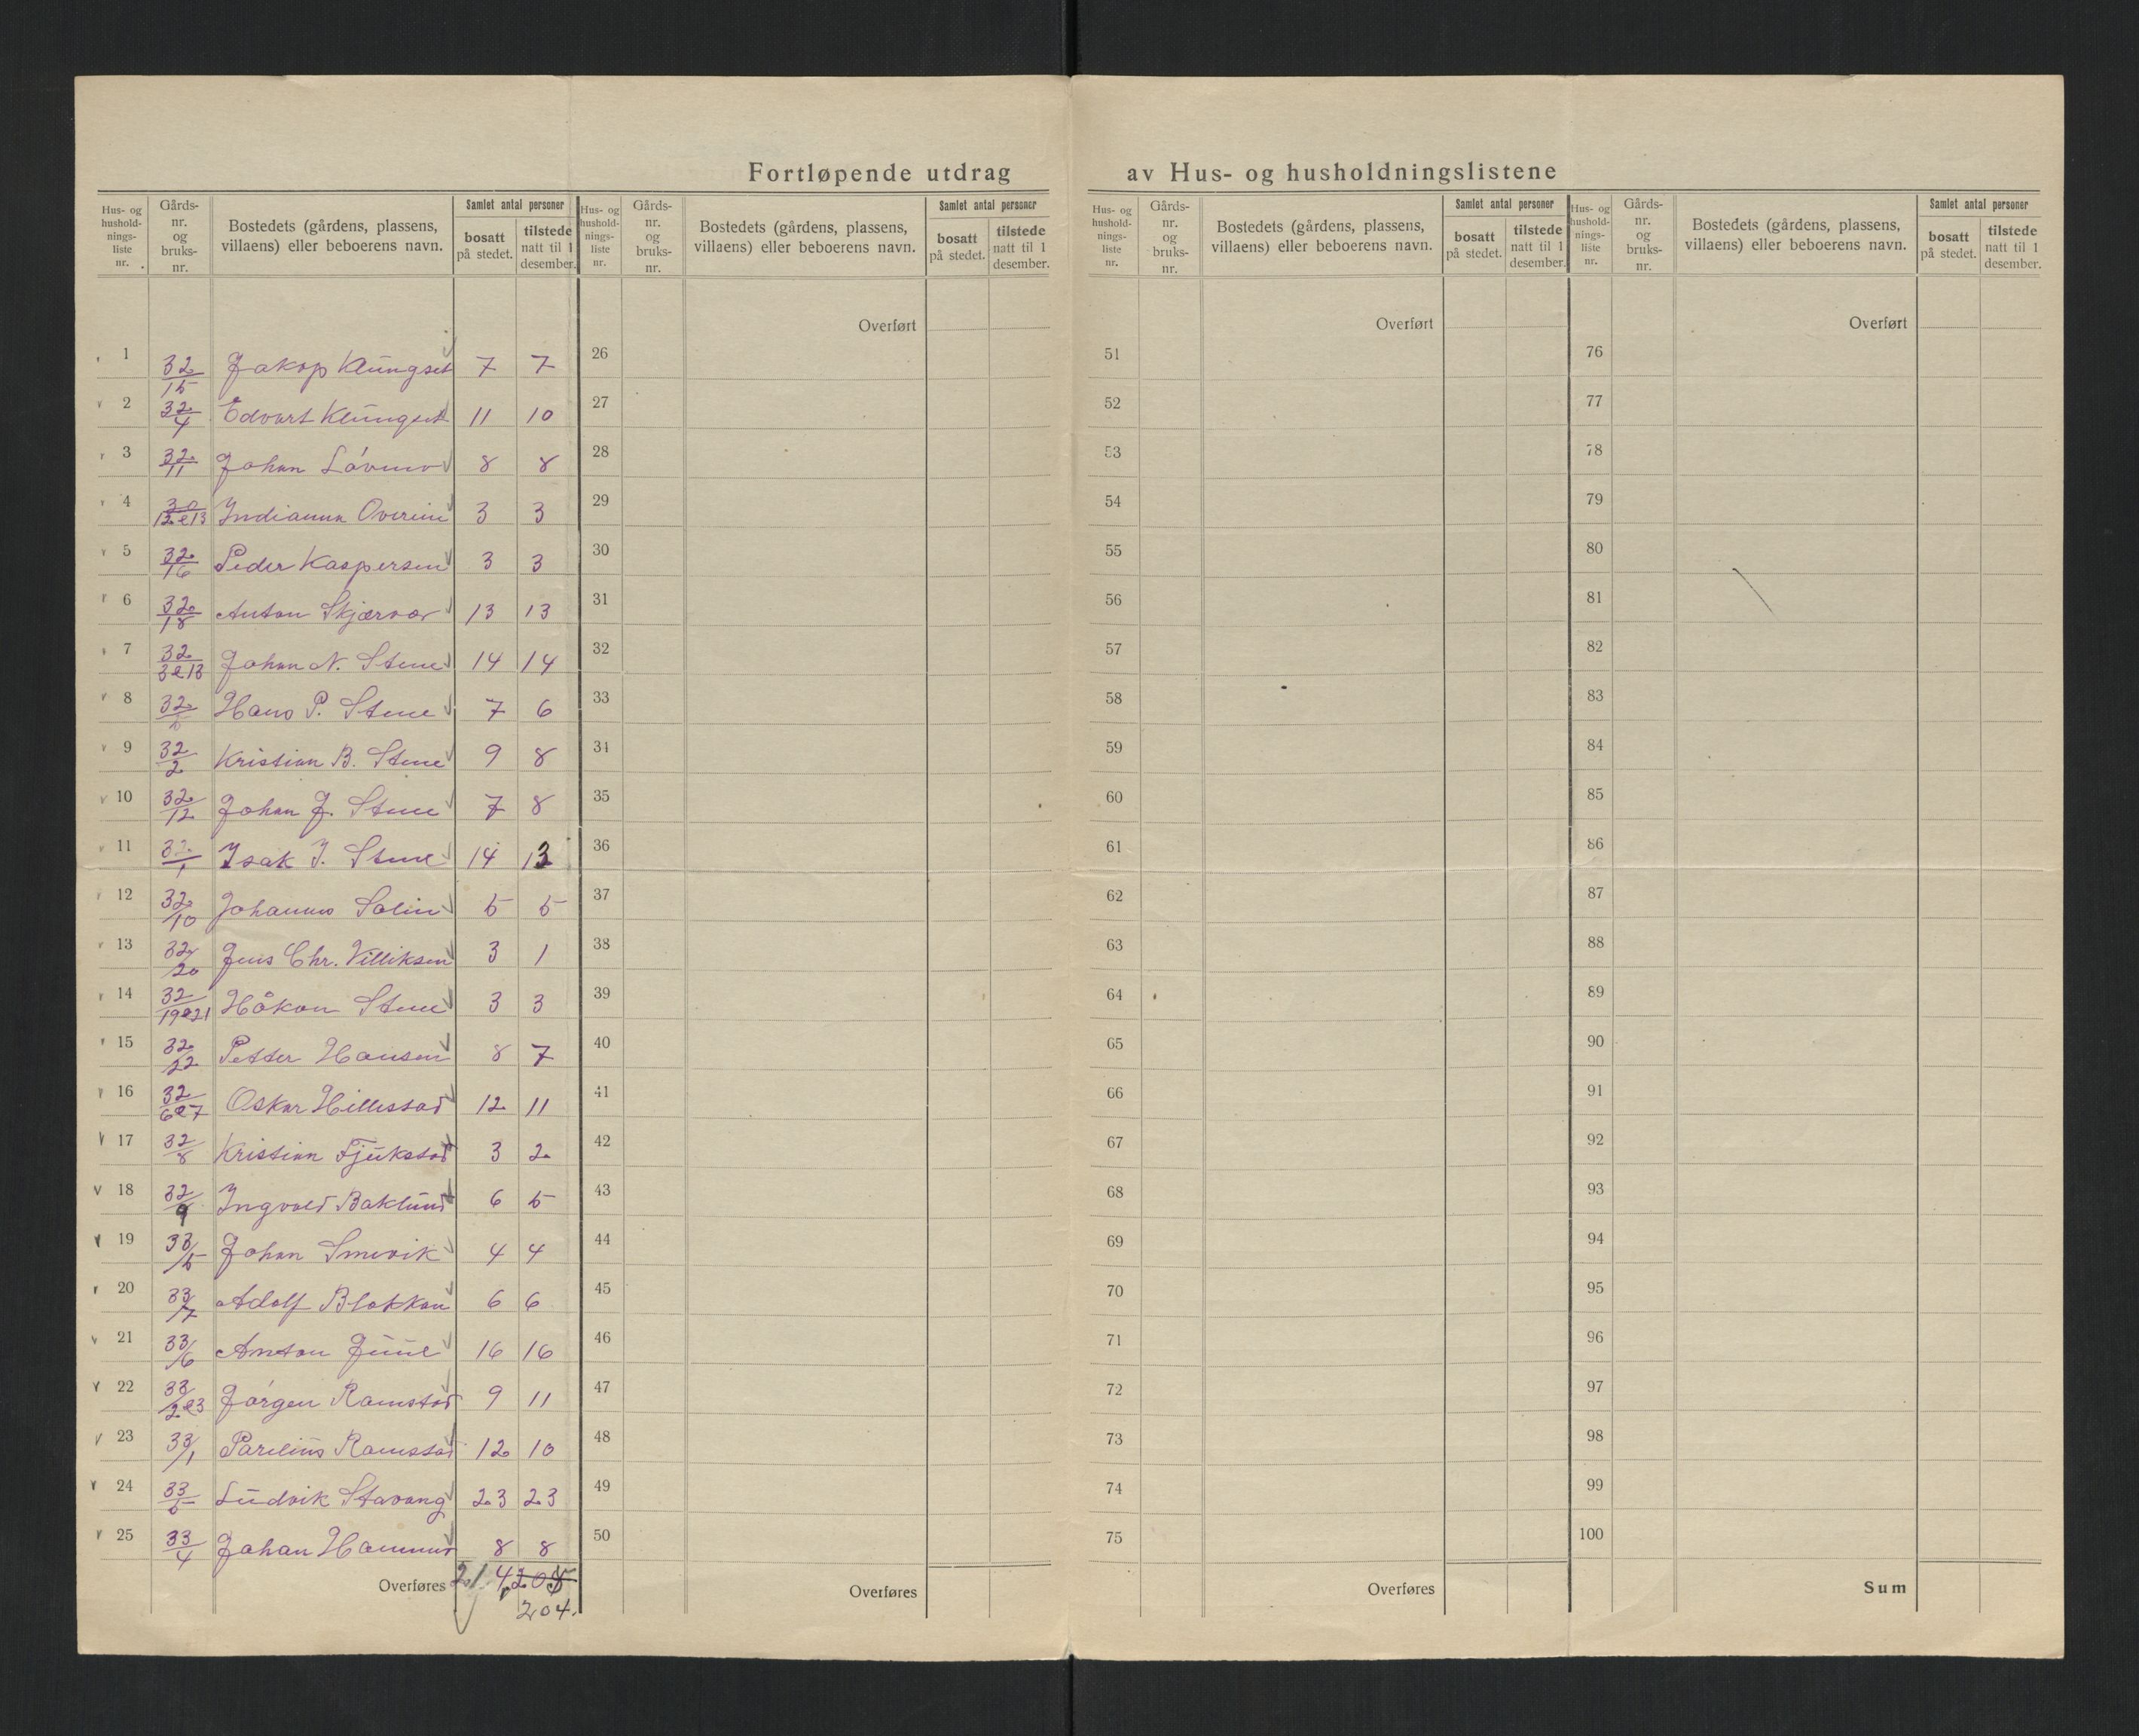 Fortløpende utdrag av Hus- og husholdningslistene
Hus- og hushold- nings- liste nr. Gårds- nr. og bruks- nr. Bostedets (gårdens, plassens, villaens) eller beboerens navn. Samlet antal personer bosatt på stedet. tilstede natt til 1 desember.
Hus- og hushold- nings- liste nr. Gårds- nr. og bruks- nr. Bostedets (gårdens, plassens, villaens) eller beboerens navn. Samlet antal personer bosatt på stedet. tilstede natt til 1 desember.
Hus- og hushold- nings- liste nr. Gårds- nr. og bruks- nr. Bostedets (gårdens, plassens, villaens) eller beboerens navn. Samlet antal personer bosatt på stedet. tilstede natt til 1 desember.
Hus- og hushold- nings- liste nr. Gårds- nr. og bruks- nr. Bostedets (gårdens, plassens, villaens) eller beboerens navn. Samlet antal personer bosatt på stedet. tilstede natt til 1 desember.
1 32/15 Jakop Klungset 7 7
2 32/4 Edvart Klungset 11 10
3 32/11 Johan 8 8
4 Indianna 3 3
5 32/16 Peder Kaspersen 3 3
6 32/18 Anton Skjærvar 13 13
7 32/3e13 Johan N. Stene 14 14
8 32/5 Hans P. Stene 7 6
9 32/2 Kristian B. Stene 9 8
10 32/12 Johan J. Stene 7 8
11 32/1 Isak J. Stene 14 13
12 32/10 Johannes Solin 5 5
13 32/20 Jens Chr. Villiksen 3 1
14 32/19e21 Håkon Stene 3 3
15 32/22 Petter Hansen 8 7
16 32/6e7 Oskar Hillestad 12 11
17 32/8 Kristian Fjukstad 3 2
18 32/9 Ingvald Baklund 6 5
19 33/5 Johan Smevik 4 4
20 33/7 Adolf Blakkan 6 6
21 33/6 Anton Juul 16 16
22 33/2e3 Jørgen Ramstad 9 11
23 33/1 Parelius Ramstad 12 10
24 33/5 Ludvik Stavang 23 23
25 33/4 Johan Hammer 8 8
Overføres 214 205
204.
Overført
26
27
28
29
30
31
32
33
34
35
36
37
38
39
40
41
42
43
44
45
46
47
48
49
50
Overføres
Overført
51
52
53
54
55
56
57
58
59
60
61
62
63
64
65
66
67
68
69
70
71
72
73
74
75
Overføres
Overført
76
77
78
79
80
81
82
83
84
85
86
87
88
89
90
91
92
93
94
95
96
97
98
99
100
Sum